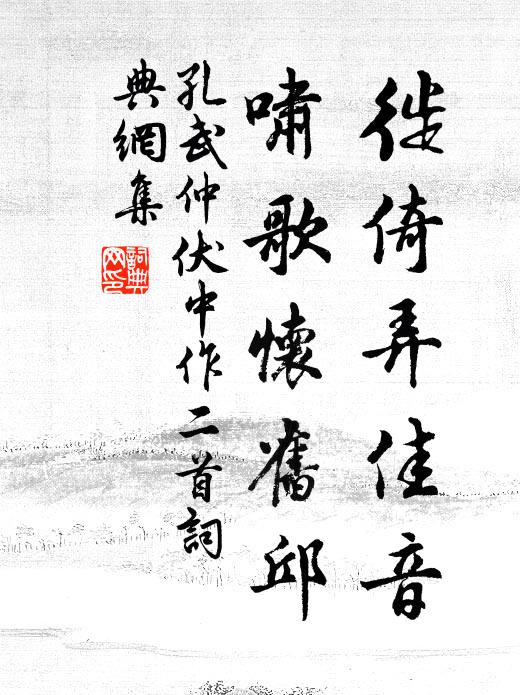 徙倚弄佳音
嘯歌懷舊邱
孔武仲伏中作二首詞
典網集
詞典
网印